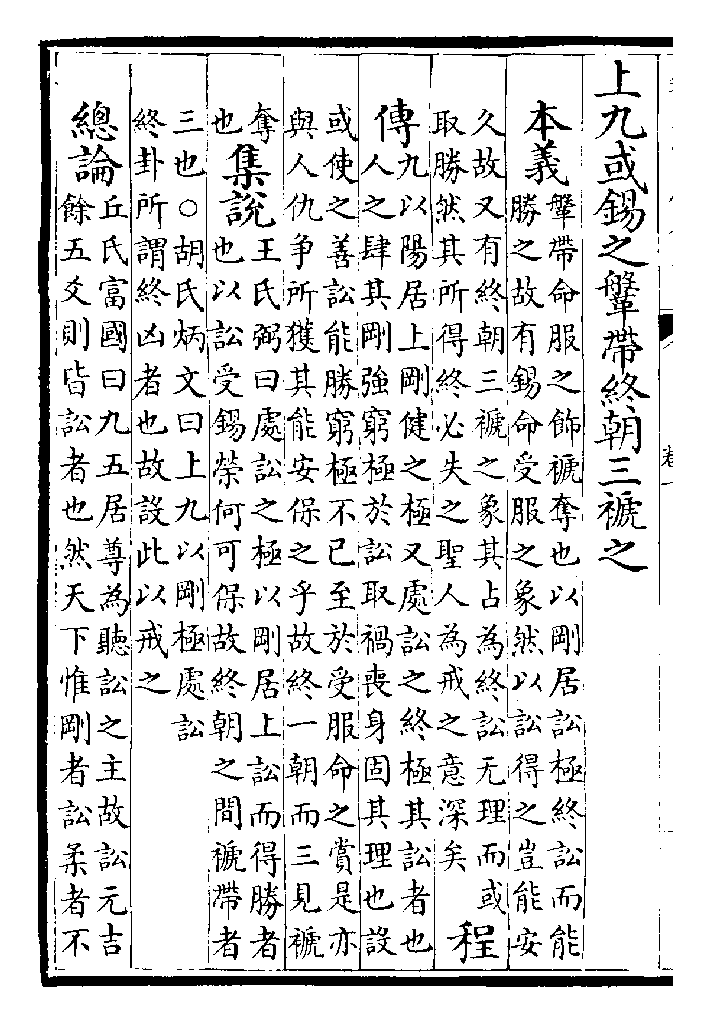 上九或錫之鞶帶終朝三褫之
本義
鞶帶命服之飾褫奪也以剛居訟極終訟而能
勝之故有錫命受服之象然以訟得之豈能安
久故又有終朝三褫之象其占為終訟无理而或
取勝然其所得終必失之聖人為戒之意深矣
程
傳
九以陽居上剛健之極又處訟之終極其訟者也
人之肆其剛強窮極於訟取禍喪身固其理也設
或使之善訟能勝窮極不已至於受服命之賞是亦
與人仇争所獲其能安保之乎故終一朝而三見褫
奪
也
集說
王氏弼曰處訟之極以剛居上訟而得勝者
也以訟受錫榮何可保故終朝之間褫帶者
三也○胡氏炳文曰上九以剛極處訟
終卦所謂終凶者也故設此以戒之
總論
丘氏富國曰九五居尊為聽訟之主故訟元吉
餘五爻則皆訟者也然天下惟剛者訟柔者不